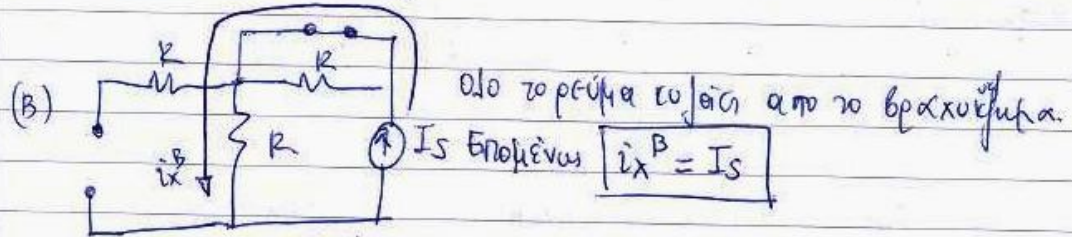 R
R
(B)
R
ix^B
Is
όλο το ρεύμα το διαρ απο το βραχυκύκλωμα.
Επομένως ix^B = Is